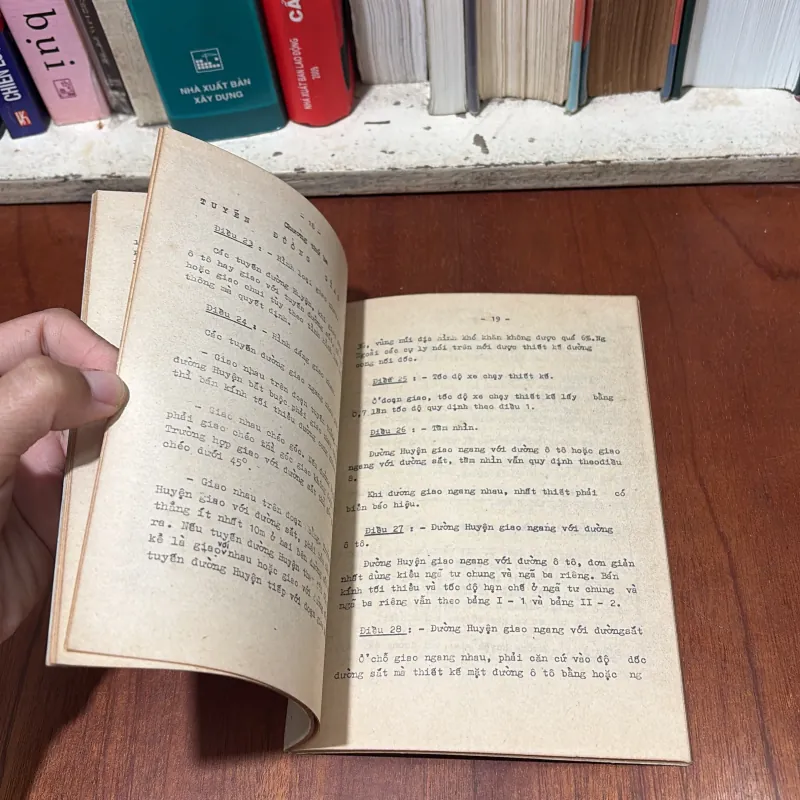 CHIẾN
bụi
NHÀ XUẤT BẢN
XÂY DỰNG
NHÀ XUẤT BẢN LAO ĐỘNG
- 18 -
Chương thứ ba
TUYẾN ĐƯỜNG
Điều 23 : - Hình loại giao
Các tuyến đường Huyện, khi
ô tô hay giao với tuyến đường
hoặc giao chui tùy theo tình hình
thông mà quyết định.
Điều 24 : - Hình dáng giao nhau
Các tuyến đường giao ngang
- Giao nhau trên đoạn tuyến
đường Huyện bắt buộc phải giao
thì bán kính tối thiểu đường
- Giao nhau chéo góc. Nếu
phải giao chéo thì góc giao không
Trường hợp giao với đường sắt
chéo dưới 45°.
- Giao nhau trên đoạn bằng.
Huyện giao với đường sắt, phải
thẳng ít nhất 10m ở hai bên đường
ra. Nếu tuyến đường Huyện
kề là giao với nhau hoặc giao với
tuyến đường Huyện tiếp với đoạn
- 19 -
vùng núi địa hình khó khăn không được quá 6%.Ng
Ngoài các cự ly nói trên mới được thiết kế đường
cong nối dốc.
Điều 25 : - Tốc độ xe chạy thiết kế.
Ở đoạn giao, tốc độ xe chạy thiết kế lấy bằng
0,7 lần tốc độ quy định theo điều 1.
Điều 26 : - Tầm nhìn.
Đường Huyện giao ngang với đường ô tô hoặc giao
ngang với đường sắt, tầm nhìn vẫn quy định theođiều
8.
Khi đường giao ngang nhau, nhất thiết phải có
biển báo hiệu.
Điều 27 : - Đường Huyện giao ngang với đường
ô tô.
Đường Huyện giao ngang với đường ô tô, đơn giản
nhất dùng kiểu ngã tư chung và ngã ba riêng. Bán
kính tối thiểu và tốc độ hạn chế ở ngã tư chung và
ngã ba riêng vẫn theo bảng I - 1 và bảng II - 2.
Điều 28 : - Đường Huyện giao ngang với đườngsắt
Ở chỗ giao ngang nhau, phải căn cứ vào độ dốc
đường sắt mà thiết kế mặt đường ô tô bằng hoặc ng